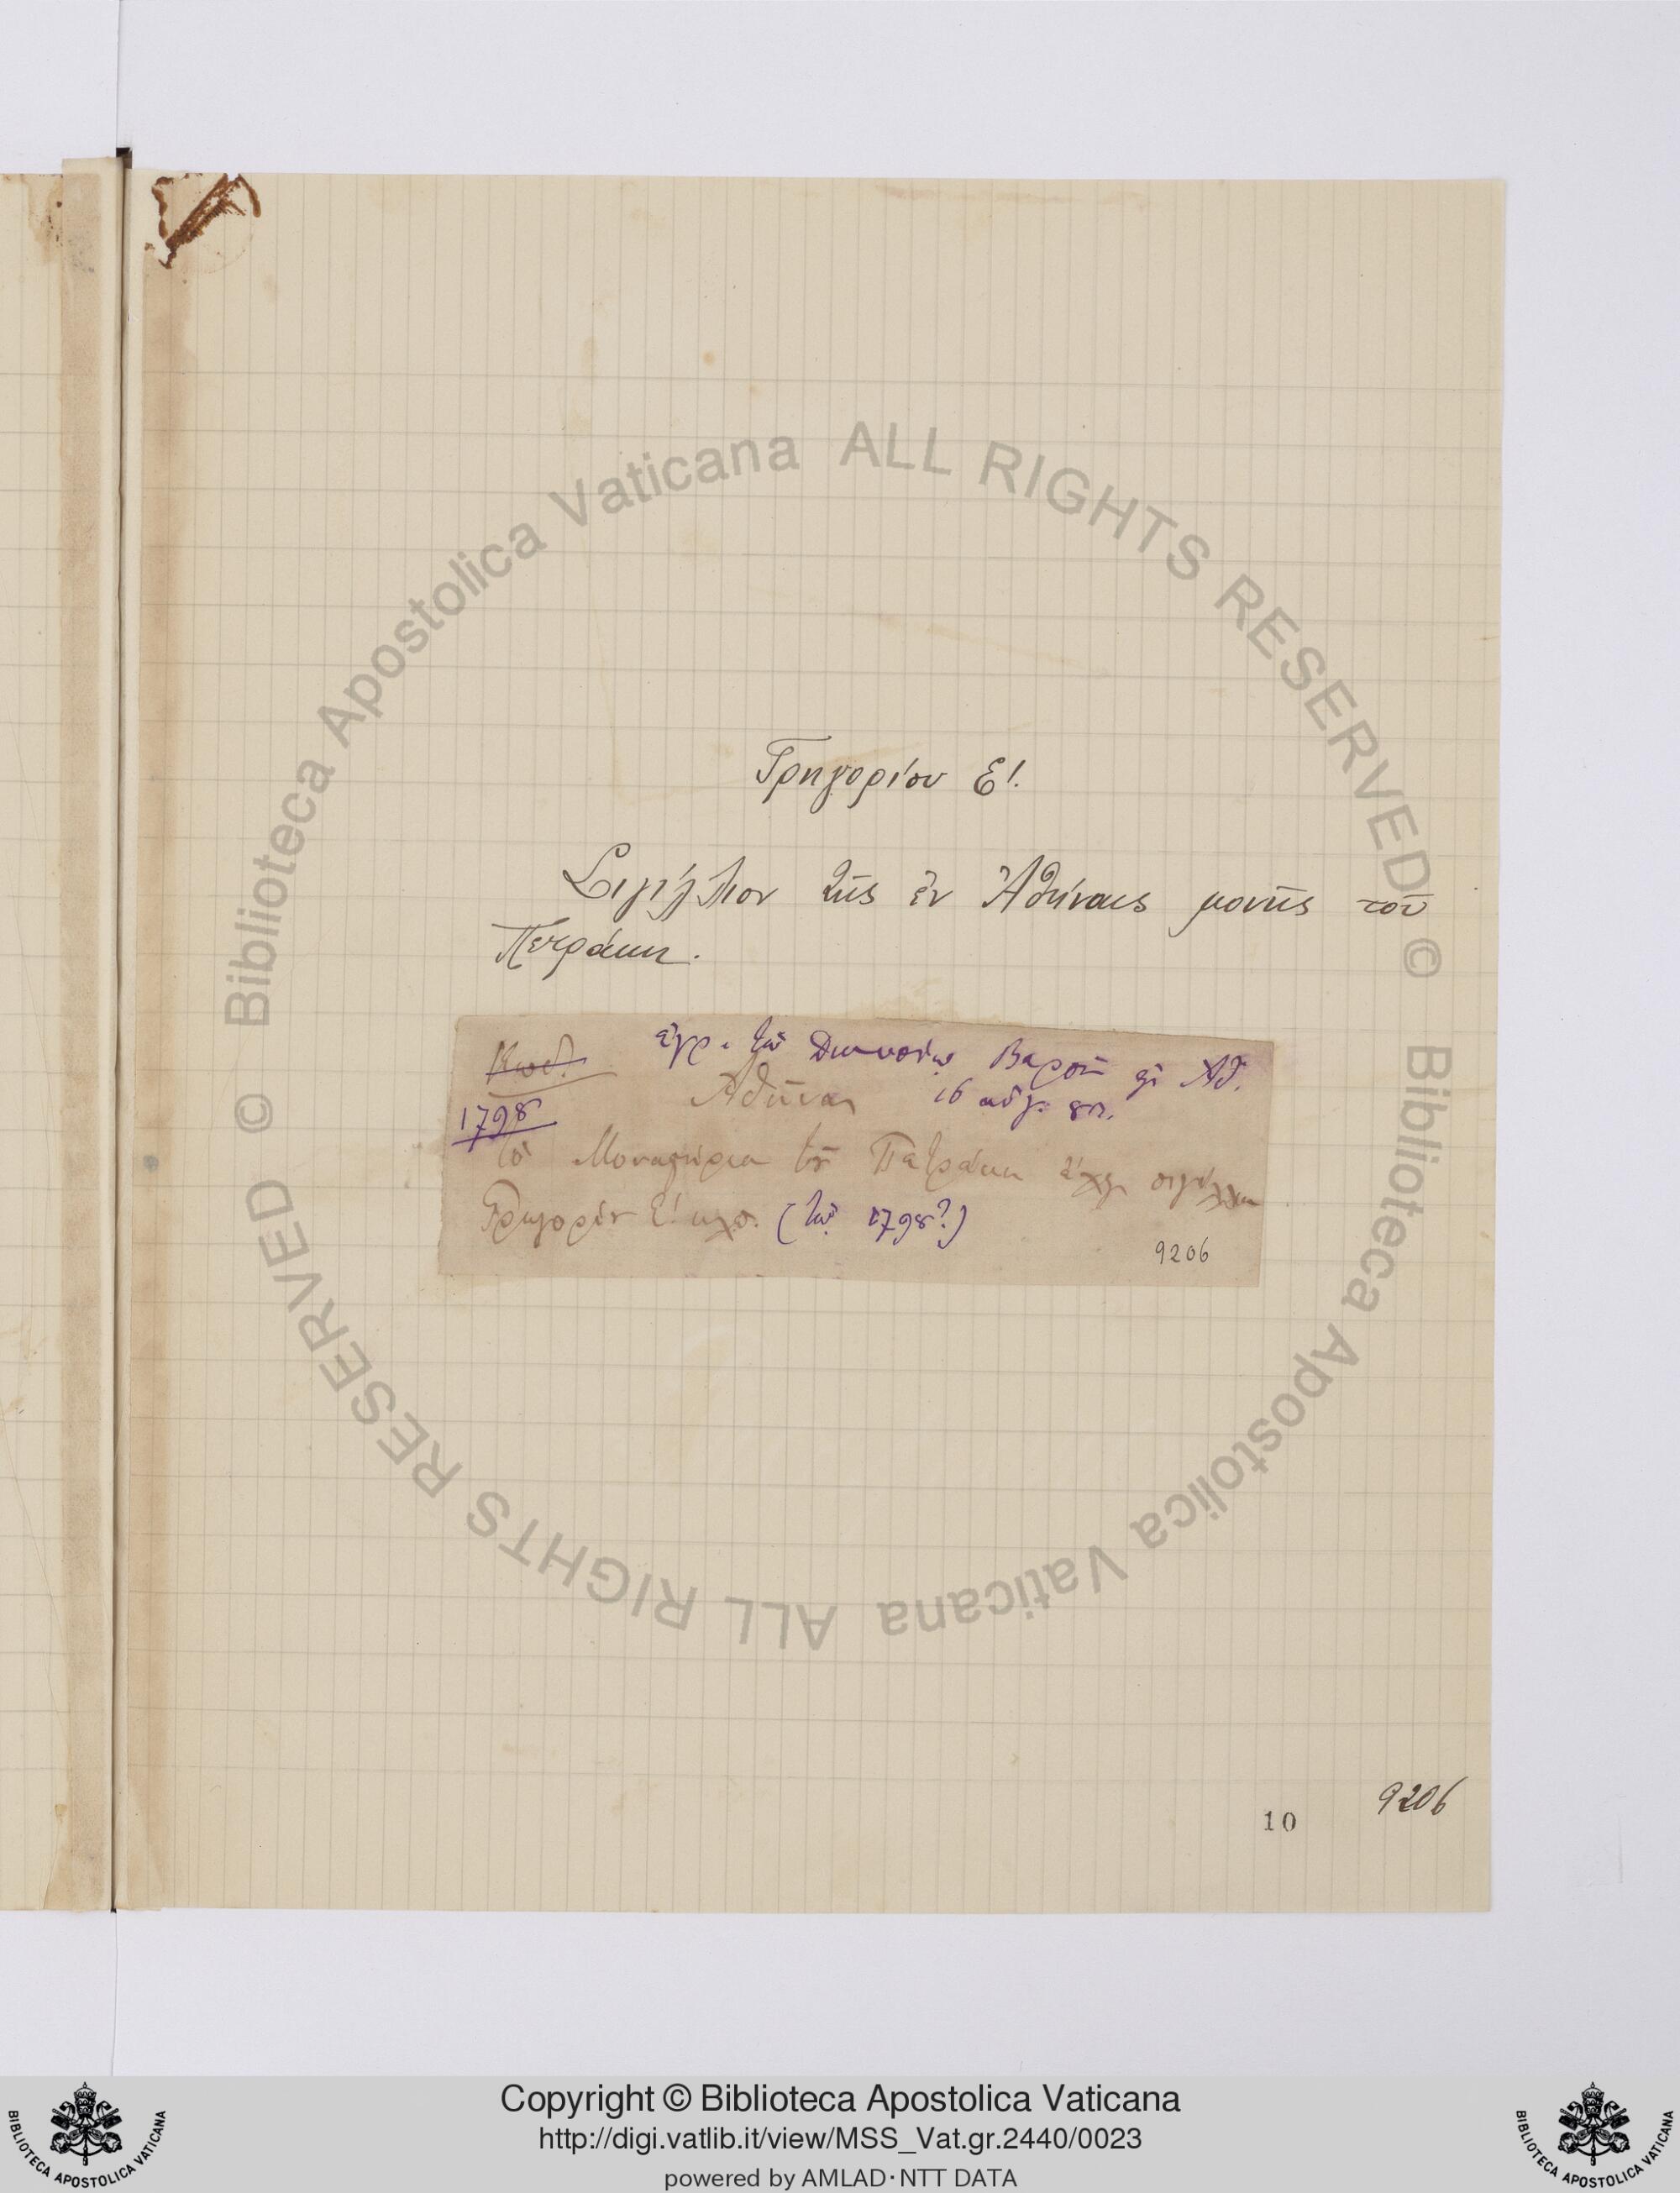 Γρηγορίου Ε'.
Σιγίλλιον τῆς ἐν Ἀθήναις μονῆς τοῦ
Πετράκη.
Κωδ.
ἐγρ. τῷ Διονυσίῳ
Ἀθῆναι 16 αὐγ.
1798
Τὸ Μοναστήριον τοῦ Πετράκη ἔχει σιγίλλιον
Γρηγορίου Ε' (τοῦ 1798?)
9206
10
9206
Biblioteca Apostolica Vaticana ALL RIGHTS RESERVED ©
Biblioteca Apostolica Vaticana ALL RIGHTS RESERVED ©
Copyright © Biblioteca Apostolica Vaticana
http://digi.vatlib.it/view/MSS_Vat.gr.2440/0023
powered by AMLAD·NTT DATA
BIBLIOTECA APOSTOLICA VATICANA
BIBLIOTECA APOSTOLICA VATICANA